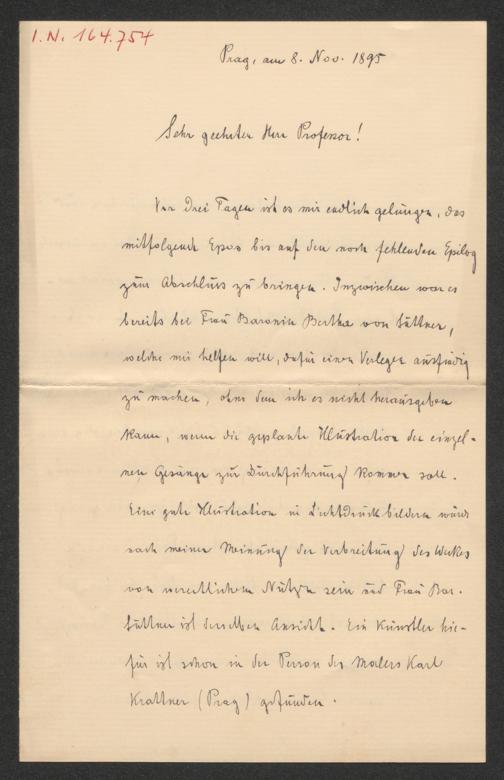 I.N. 164.754
Prag, am 8. Nov. 1895
Sehr geehrter Herr Professor!
Vor Drei Tagen ist es mir endlich gelungen, das
mitfolgende Epos bis auf den noch fehlenden Epilog
zum Abschluss zu bringen. Inzwischen war es
bereits bei Frau Baronin Bertha von Suttner,
welche mir helfen will, dafür einen Verleger ausfindig
zu machen, ohne dem ich es nicht herausgeben
kann, wenn die geplante Illustration der einzel-
nen Gesänge zur Durchführung kommen soll.
Eine gute Illustration in Lichtdruckbildern würde
nach meiner Meinung der Verbreitung des Werkes
von wesentlichem Nutzen sein und Frau Bar.
Suttner ist derselben Ansicht. Ein Künstler hie-
für ist schon in der Person des Malers Karl
Krattner (Prag) gefunden.